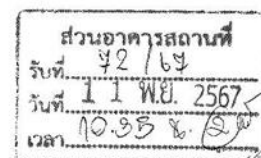 ส่วนอาคารสถานที่
รับที่ 72/67
วันที่ 11 พ.ย. 2567
เวลา 10.35 น.